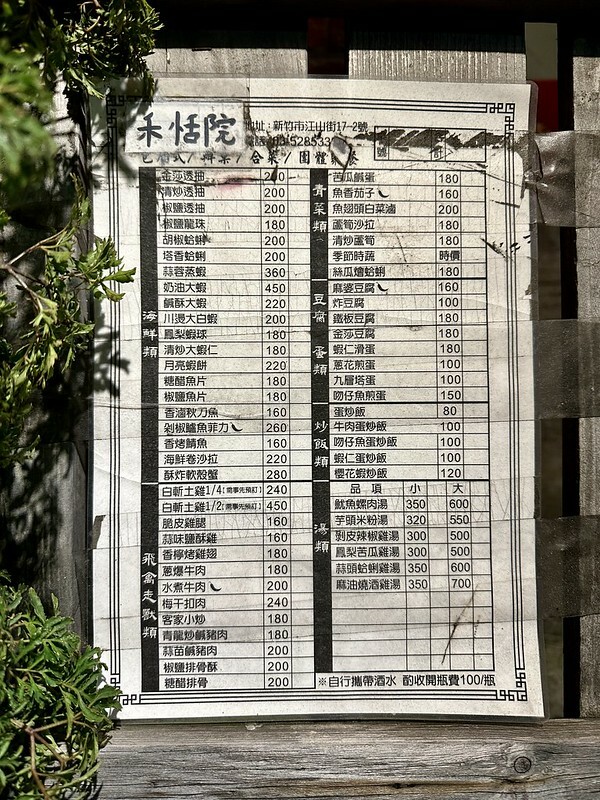 禾恬院
地址：新竹市江山街17-2號
合菜/團體
海鮮類
金莎透抽
清炒透抽 200
椒鹽透抽 200
椒鹽龍珠 180
胡椒蛤蜊 200
塔香蛤蜊 200
蒜蓉蒸蝦 360
奶油大蝦 450
鹹酥大蝦 220
川燙大白蝦 200
鳳梨蝦球 180
清炒大蝦仁 180
月亮蝦餅 220
糖醋魚片 180
椒鹽魚片 180
香滷秋刀魚 160
剁椒鱸魚菲力 260
香烤鯖魚 160
海鮮卷沙拉 220
酥炸軟殼蟹 280
飛禽走獸類
白斬土雞1/4(需事先預訂) 240
白斬土雞1/2(需事先預訂) 450
脆皮雞腿 160
蒜味鹽酥雞 160
香檸烤雞翅 180
蔥爆牛肉 180
水煮牛肉 200
梅干扣肉 240
客家小炒 180
青龍炒鹹豬肉 180
蒜苗鹹豬肉 200
椒鹽排骨酥 200
糖醋排骨 200
青菜類
苦瓜鹹蛋 180
魚香茄子 160
魚翅頭白菜滷 200
蘆筍沙拉 180
清炒蘆筍 180
季節時蔬 時價
絲瓜燴蛤蜊 180
豆腐 蛋類
麻婆豆腐 160
炸豆腐 100
鐵板豆腐 180
金莎豆腐 180
蝦仁滑蛋 180
蔥花煎蛋 100
九層塔蛋 100
吻仔魚煎蛋 150
炒飯類
蛋炒飯 80
牛肉蛋炒飯 100
吻仔魚蛋炒飯 100
蝦仁蛋炒飯 100
櫻花蝦炒飯 120
湯類
品項 小 大
魷魚螺肉湯 350 600
芋頭米粉湯 320 550
剝皮辣椒雞湯 300 500
鳳梨苦瓜雞湯 300 500
蒜頭蛤蜊雞湯 350 600
麻油燒酒雞湯 350 700
※自行攜帶酒水 酌收開瓶費100/瓶